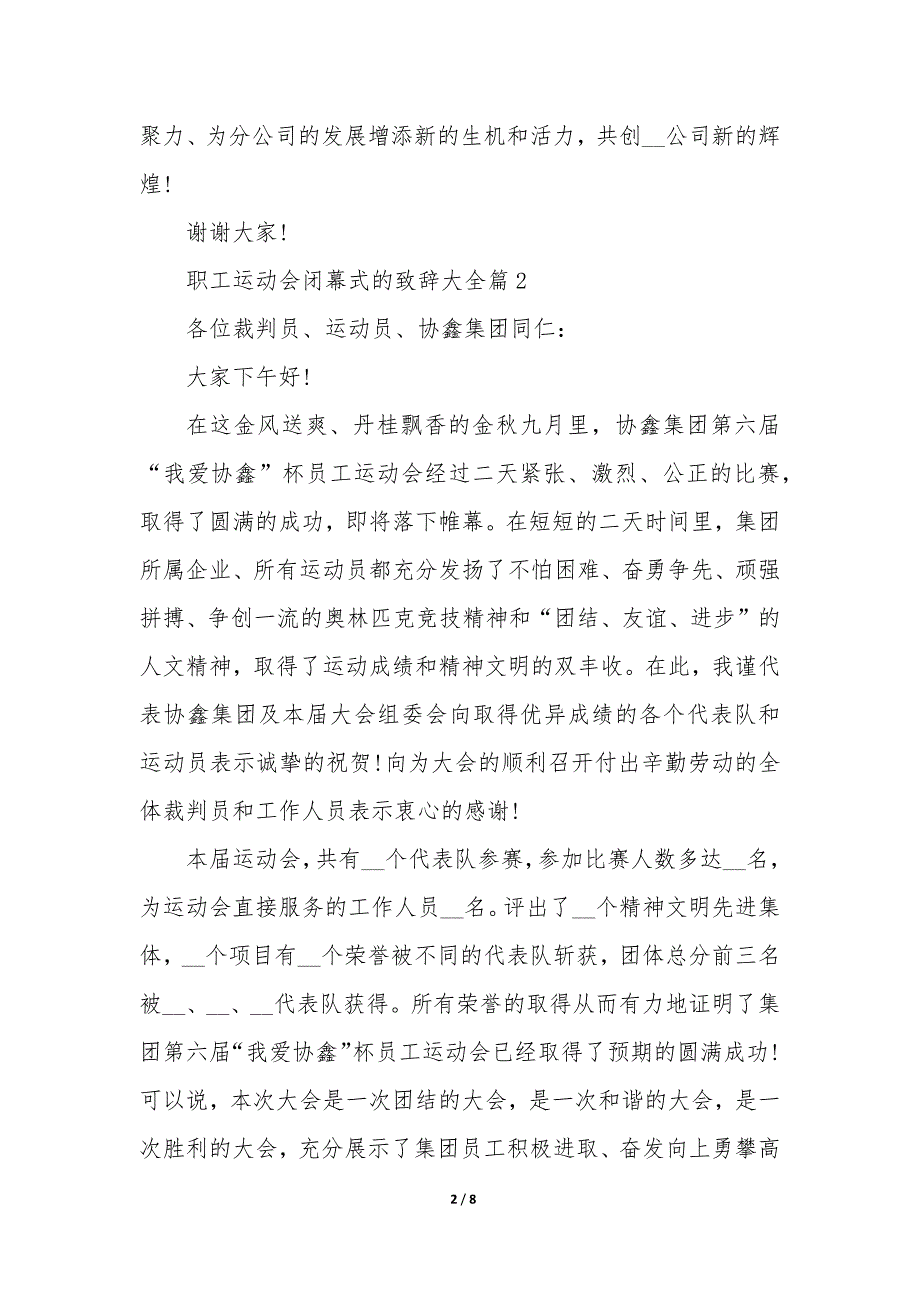 聚力、为分公司的发展增添新的生机和活力，共创__公司新的辉
煌!
谢谢大家!
职工运动会闭幕式的致辞大全篇2
各位裁判员、运动员、协鑫集团同仁：
大家下午好!
在这金风送爽、丹桂飘香的金秋九月里，协鑫集团第六届
“我爱协鑫”杯员工运动会经过二天紧张、激烈、公正的比赛，
取得了圆满的成功，即将落下帷幕。在短短的二天时间里，集团
所属企业、所有运动员都充分发扬了不怕困难、奋勇争先、顽强
拼搏、争创一流的奥林匹克竞技精神和“团结、友谊、进步”的
人文精神，取得了运动成绩和精神文明的双丰收。在此，我谨代
表协鑫集团及本届大会组委会向取得优异成绩的各个代表队和
运动员表示诚挚的祝贺!向为大会的顺利召开付出辛勤劳动的全
体裁判员和工作人员表示衷心的感谢!
本届运动会，共有__个代表队参赛，参加比赛人数多达__名，
为运动会直接服务的工作人员__名。评出了__个精神文明先进集
体，__个项目有__个荣誉被不同的代表队斩获，团体总分前三名
被__、__、__代表队获得。所有荣誉的取得从而有力地证明了集
团第六届“我爱协鑫”杯员工运动会已经取得了预期的圆满成功!
可以说，本次大会是一次团结的大会，是一次和谐的大会，是一
次胜利的大会，充分展示了集团员工积极进取、奋发向上勇攀高
2 / 8